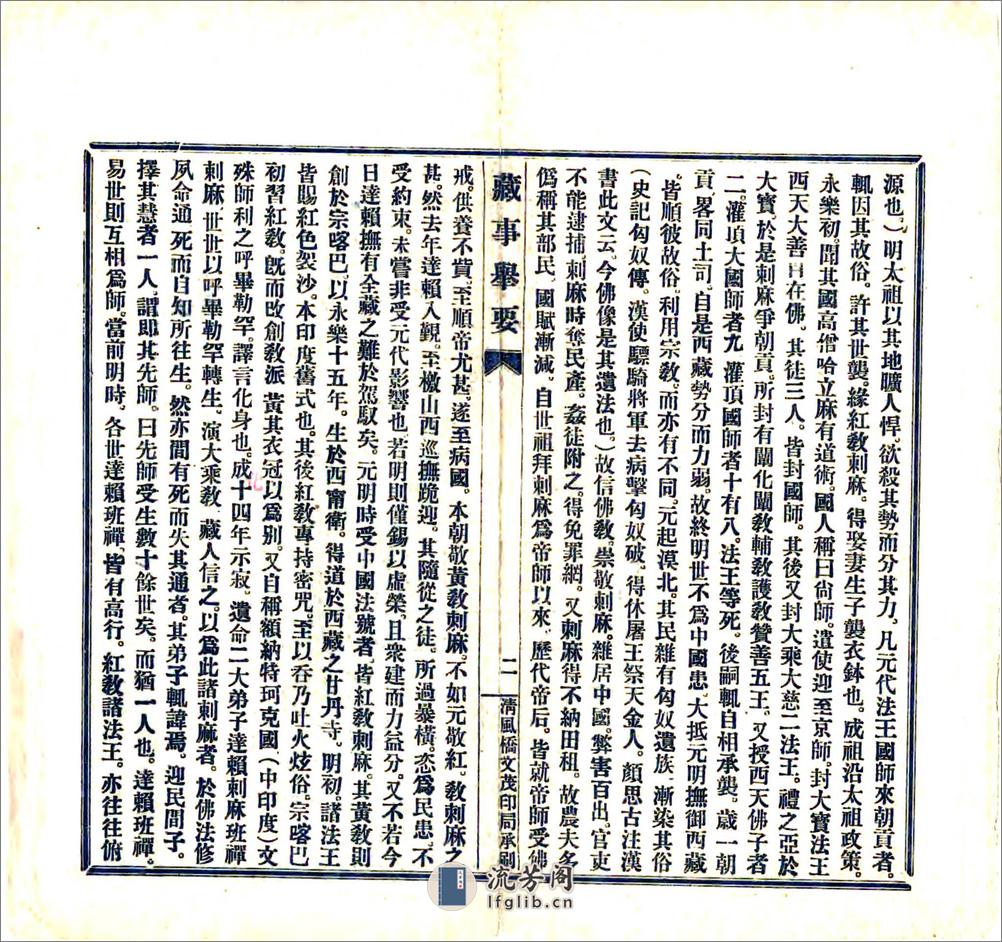 源也。）明太祖以其地曠人悍。欲殺其勢而分其力。凡元代法王國師來朝貢者。
輒因其故俗。許其世襲。緣紅教刺麻。得娶妻生子襲衣鉢也。成祖沿太祖政策。
永樂初。聞其國高僧哈立麻有道術。國人稱曰尙師。遣使迎至京師。封大寶法王
西天大善自在佛。其徒三人。皆封國師。其後又封大乘大慈二法王。禮之亞於
大寶。於是刺麻爭朝貢。所封有闡化闡教輔教護教贊善五王。又授西天佛子者
二。灌頂大國師者九。灌頂國師者十有八。法王等死。後嗣輒自相承襲。歲一朝
貢。畧同土司。自是西藏勢分而力弱。故終明世不爲中國患。大抵元明撫御西藏
皆順彼故俗。利用宗教。而亦有不同。元起漠北。其民雜有匈奴遺族。漸染其俗
（史記匈奴傳。漢使驃騎將軍去病擊匈奴破。得休屠王祭天金人。顏思古注漢
書此文云。今佛像是其遺法也。）故信佛教。崇敬刺麻。雜居中國。弊害百出。官吏
不能逮捕。刺麻時奪民產。姦徒附之。得免罪網。又刺麻得不納田租。故農夫多
僞稱其部民。國賦漸減。自世祖拜刺麻爲帝師以來。歷代帝后。皆就帝師受佛
藏事舉要
二
清風橋文茂印局承刷
戒。供養不貲。至順帝尤甚。遂至病國。本朝敬黃教刺麻。不如元敬紅教刺麻之
甚。然去年達賴入覲。至檄山西巡撫跪迎。其隨從之徒。所過暴橫。恣爲民患。不
受約束。未嘗非受元代影響也。若明則僅錫以虛榮。且衆建而力益分。又不若今
日達賴撫有全藏之難於駕馭矣。元明時受中國法號者。皆紅教刺麻。其黃教則
創於宗喀巴。以永樂十五年。生於西甯衞。得道於西藏之甘丹寺。明初。諸法王
皆賜紅色袈沙。本印度舊式也。其後紅教專持密咒。至以吞刀吐火炫俗。宗喀巴
初習紅教。旣而改創教派。黃其衣冠以爲別。又自稱額納特珂克國（中印度）文
殊師利之呼畢勒罕。譯言化身也。成十四年示寂。遺命二大弟子達賴刺麻班禪
刺麻。世世以呼畢勒罕轉生。演大乘教。藏人信之。以爲此諸刺麻者。於佛法修
夙命通。死而自知所往生。然亦間有死而失其通者。其弟子輒諱焉。迎民間子。
擇其慧者一人。謂卽其先師。曰先師受生數十餘世矣。而猶一人也。達賴班禪。
易世則互相爲師。當前明時。各世達賴班禪。皆有高行。紅教諸法王。亦往往俯
化
流芳阁
lfglib.cn